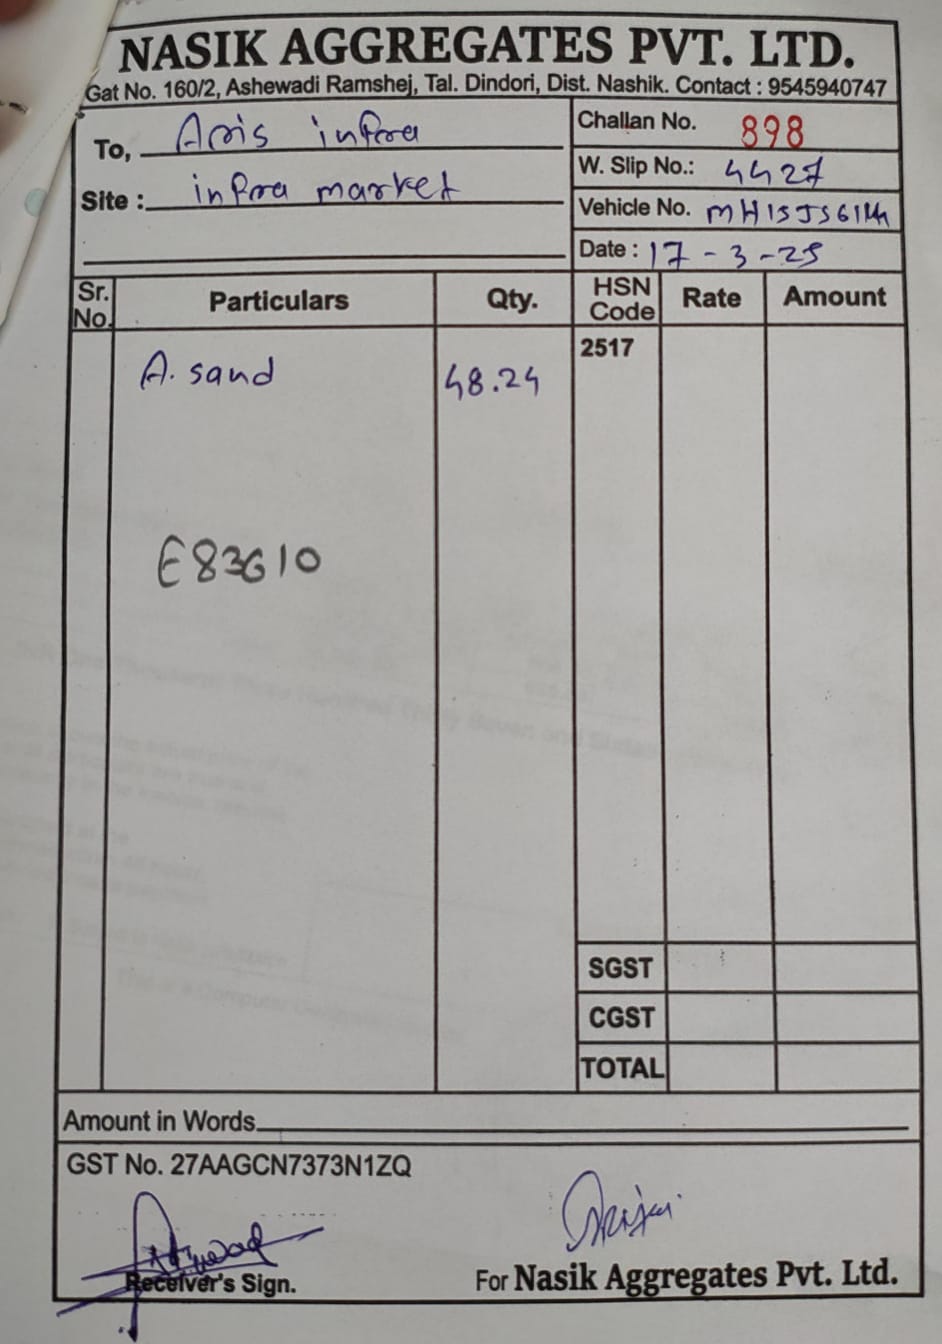 NASIK AGGREGATES PVT. LTD.
Gat No. 160/2, Ashewadi Ramshej, Tal. Dindori, Dist. Nashik. Contact : 9545940747
To, Aris infra
Site : infra market
Challan No. 898
W. Slip No.: 4427
Vehicle No.
Date : 17-3-25
Sr. No. Particulars Qty. HSN Code Rate Amount
2517
A. sand 48.24
E83610
SGST
CGST
TOTAL
Amount in Words
GST No. 27AAGCN7373N1ZQ
Receiver's Sign.
For Nasik Aggregates Pvt. Ltd.